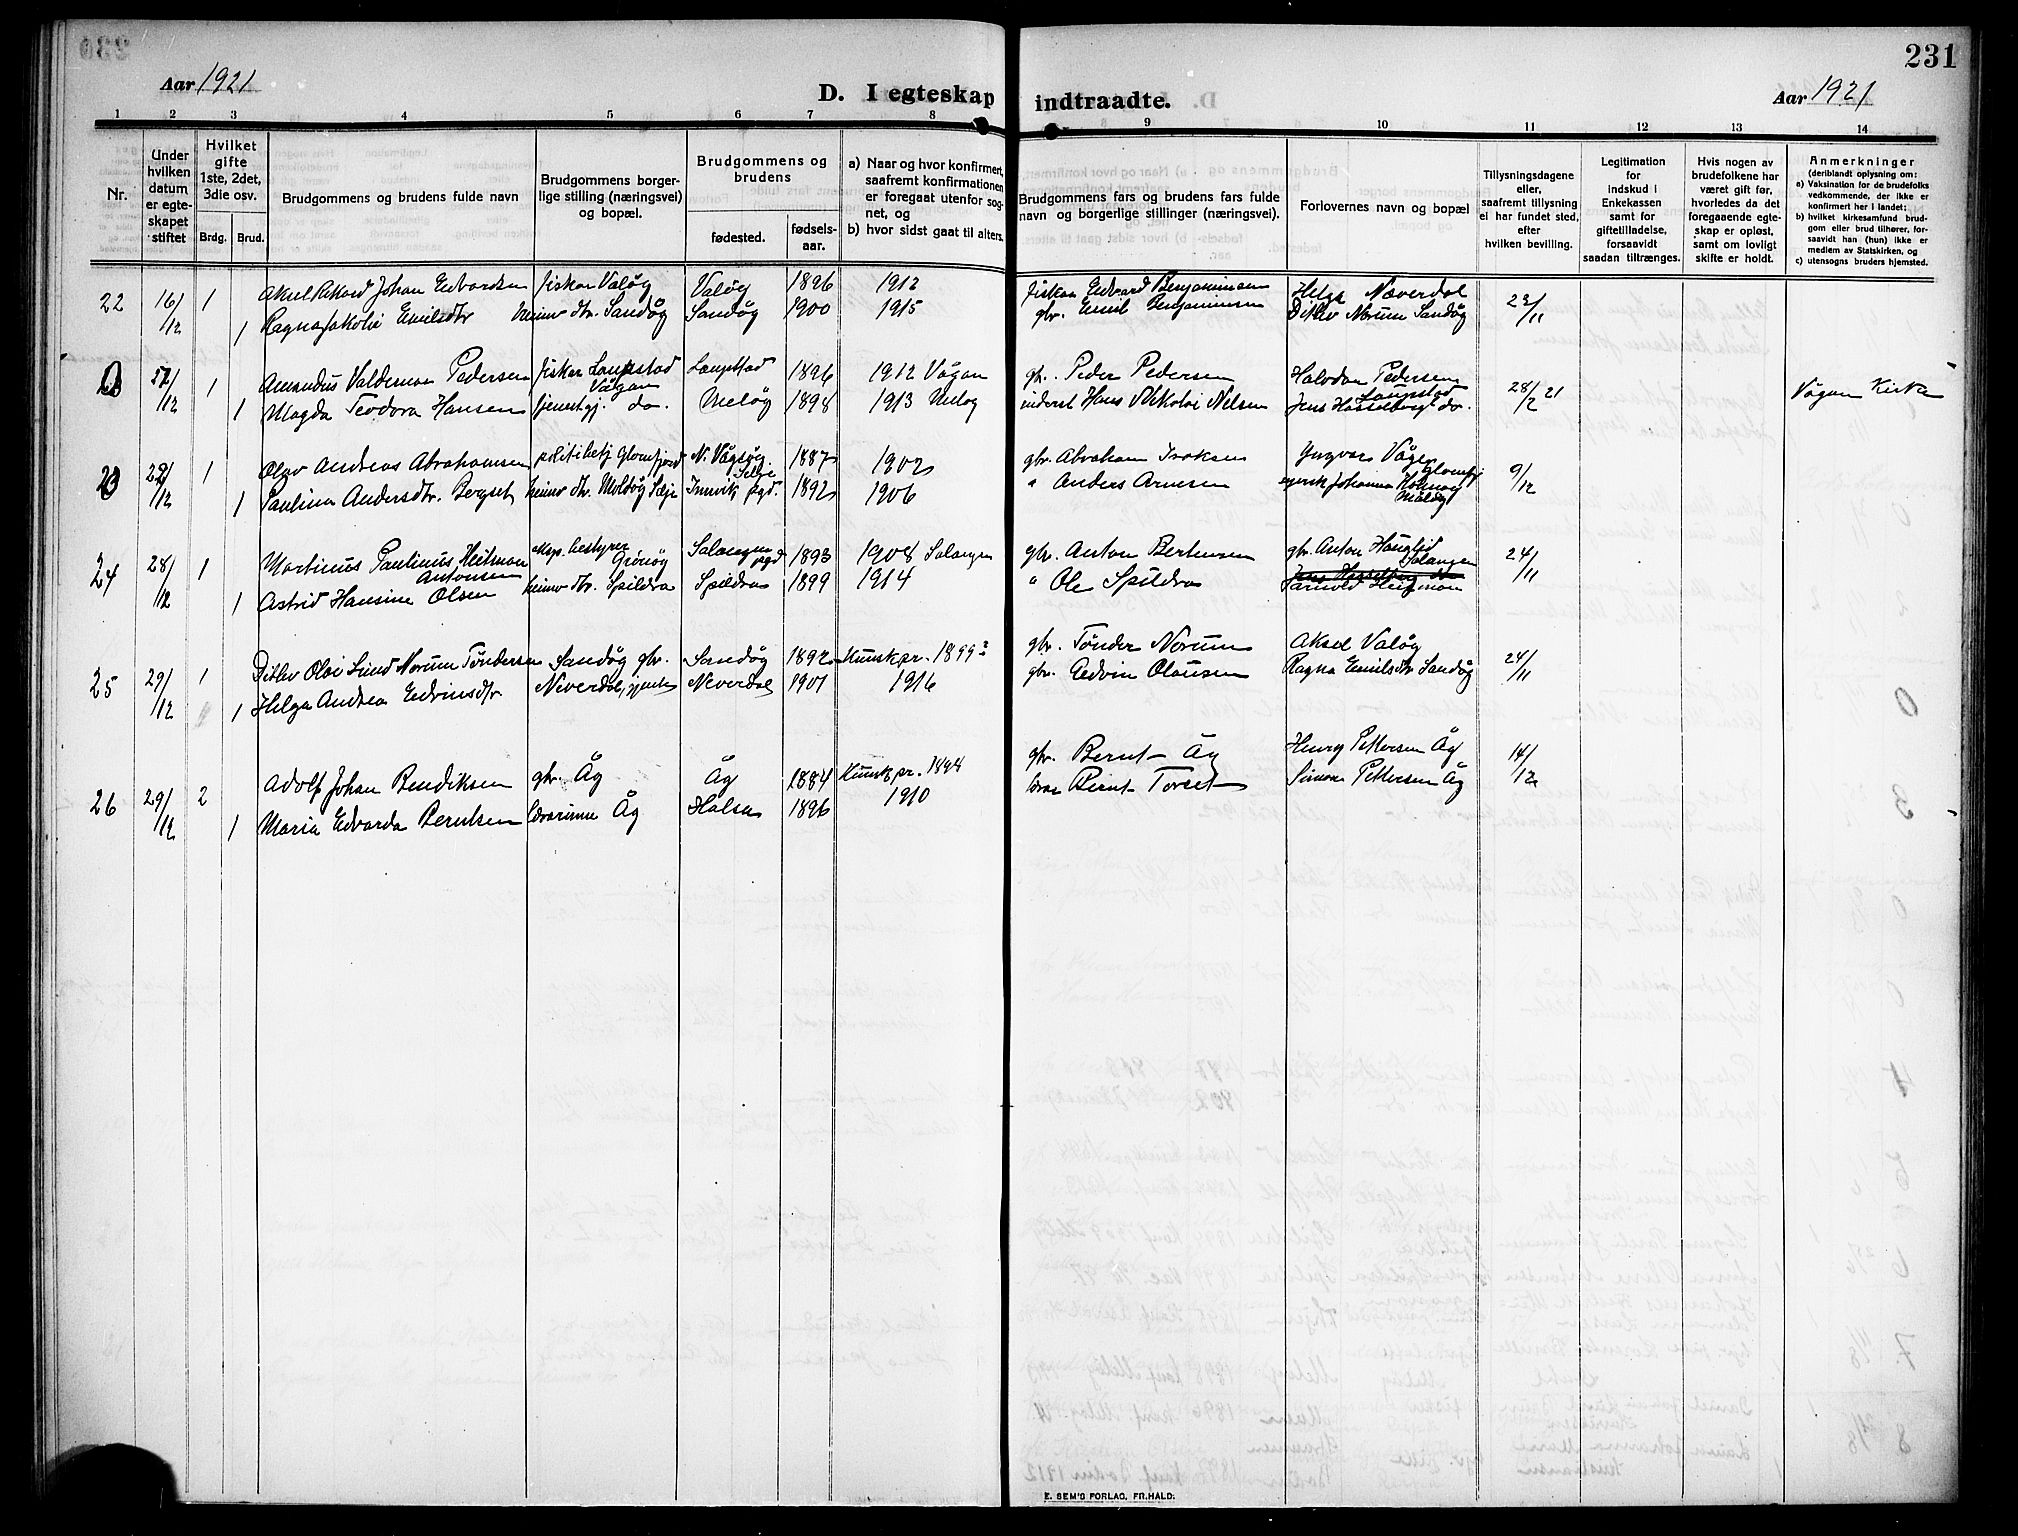 231
Aar 1921
D. I egteskap indtraadte.
Aar 1921
1 2 3 4 5 6 7 8 9 10 11 12 13 14
Nr.
Under hvilken datum er egteskapet stiftet
Hvilket gifte 1ste, 2det, 3die osv.
Brdg. Brud.
Brudgommens og brudens fulde navn
Brudgommens borgerlige stilling (næringsvei) og bopæl.
Brudgommens og brudens
fødested. fødselsaar.
a) Naar og hvor konfirmert, saafremt konfirmationen er foregaat utenfor sognet, og
b) hvor sidst gaat til alters.
Brudgommens fars og brudens fars fulde navn og borgerlige stillinger (næringsvei).
Forlovernes navn og bopæl
Tillysningsdagene eller, saafremt tillysning ei har fundet sted, efter hvilken bevilling.
Legitimation for indskud i Enkekassen samt for giftetilladelse, forsaavidt saadan tiltrænges.
Hvis nogen av brudefolkene har været gift før, hvorledes da det foregaaende egteskap er opløst, samt om lovligt skifte er holdt.
Anmerkninger (deriblandt oplysning om:
a) Vaksination for de brudefolks vedkommende, der ikke er konfirmert her i landet;
b) hvilket kirkesamfund brudgom eller brud tilhører, forsaavidt han (hun) ikke er medlem av Statskirken, og
c) utensogns bruders hjemsted.
22 16/12 1 Aksel Rikard Johan Edvardsen fisker Valøg Valøg 1896 1912 fisker Edvard Benjaminsen Helga Næverdal 23/11
1 Ragna Jakobie Emilsdtr heimv dtr. Sandøg Sandøg 1900 1915 gbr. Emil Benjaminsen Ditlev Norum Sandøg
/12 1 Amandus Valdemar Pedersen fisker Laupstad Vågan Laupstad 1896 1912 Vågan gbr. Peder Pedersen Halvdan Pedersen Laupstad 28/2 21 Vågan Kirke
1 Magda Teodora Hansen tjenestgj. do. Meløy 1898 1913 Meløy inderst Hans Nikolai Nilsen Jens Hasselberg do.
23 22/12 1 Olav Andreas Abrahamsen politibetj Glomfjord N. Vågsøy Selje 1887 1902 gbr. Abraham Isaksen Yngvar Våge Glomfj 9/12
1 Paulina Andersdtr. Berget heimv dtr. Moldøy Selje Innvik pgd. 1892 1906 " Anders Arnesen Johanna Måløy
24 28/12 1 Martinus Paulinus Heitman Antonsen eksp. bestyrer Grønøy Salangen pgd 1893 1908 Salangen gbr. Anton Bertensen gbr. Anton Hauglid Salangen 24/11
1 Astrid Hansine Olsen heimv dtr. Spildra Spildra 1899 1914 " Ole Spildra Jens Hasselberg
25 29/12 1 Ditlev Olai Lund Norum Tøndersen Sandøg gbr. Sandøg 1892 Kunsk.pr. 1899? gbr. Tønder Norum Aksel Valøg 24/11
1 Helga Andrea Edvinsdtr. Neverdal, Neverdal 1901 1916 gbr. Edvin Olausen Ragna Emilsdtr Sandøg
26 29/12 2 Adolf Johan Bendiksen gbr. Åg Åg 1884 Kunsk.pr. 1894 gbr Bernt Åg Henry Pettersen Åg 14/12
1 Maria Edvarda Berntsen Åg Halsa 1896 1910 Bernt Torset Simon Pettersen Åg
E. SEM'S FORLAG, FR.HALD: